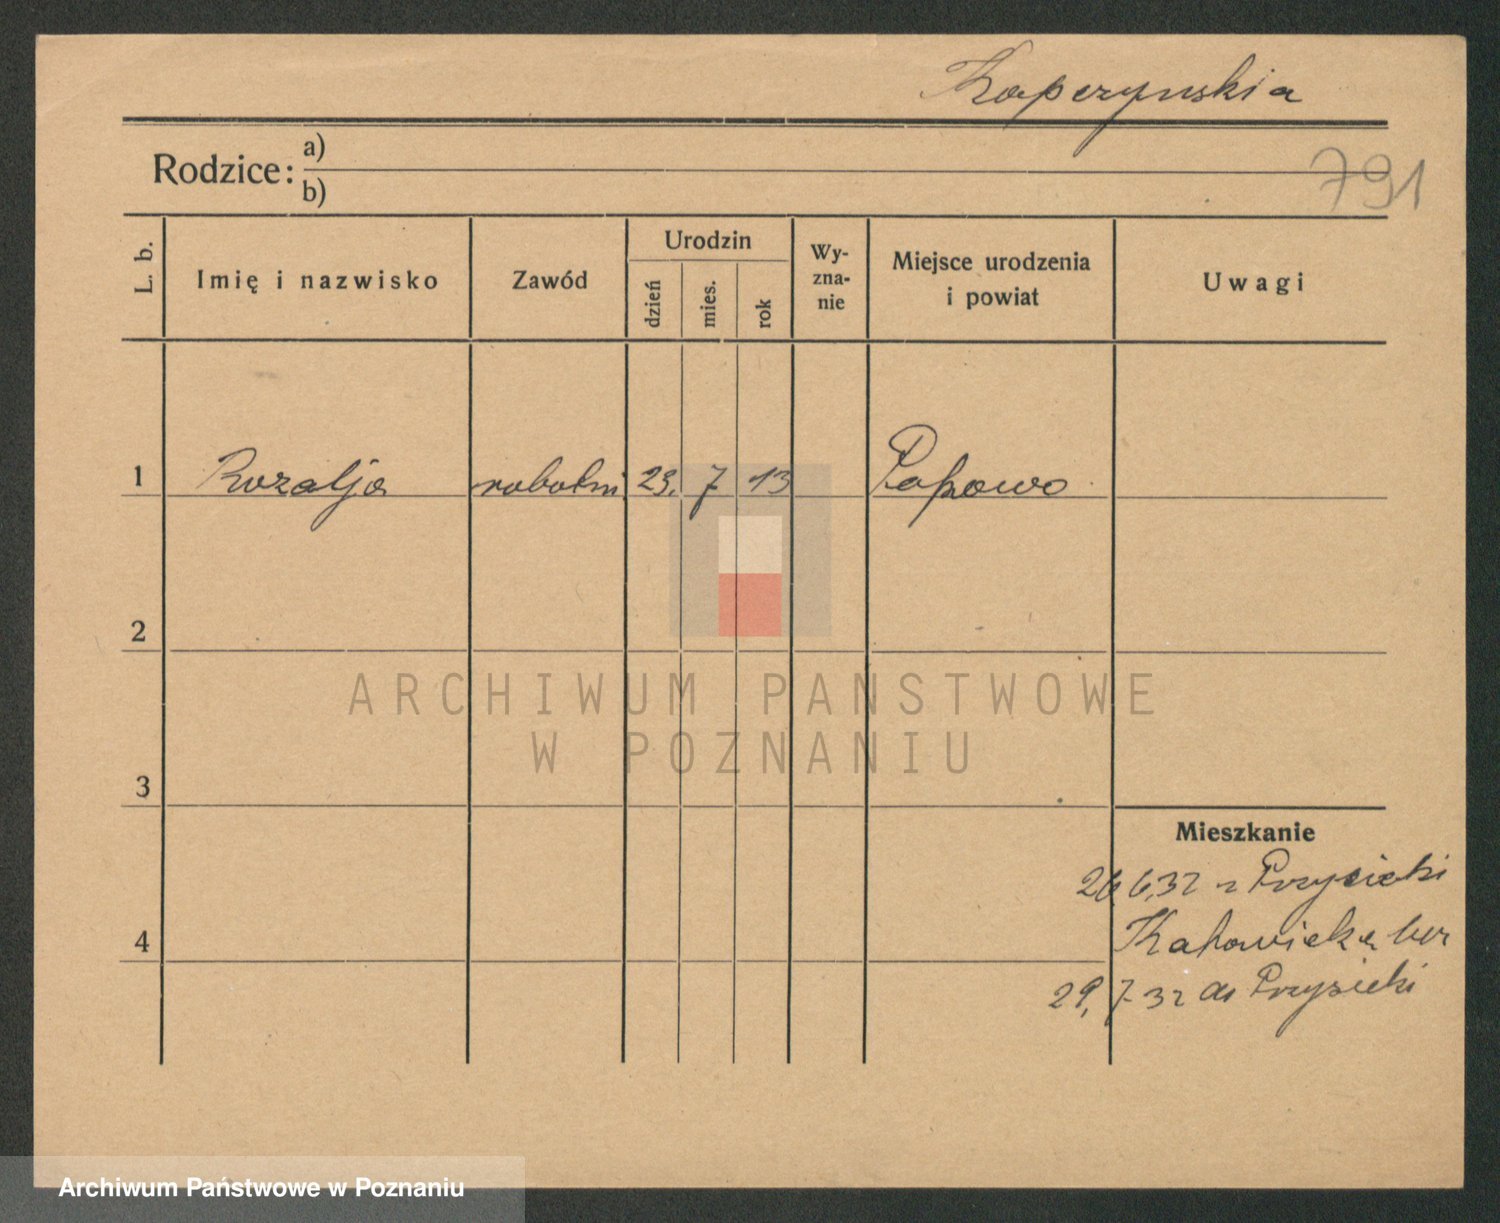 Kapczynska
Rodzice: a)
b)
791
L. b.
Imię i nazwisko
Zawód
Urodzin
dzień
mies.
rok
Wy-
zna-
nie
Miejsce urodzenia
i powiat
Uwagi
1 Rozalja robotni 23. 7 13 Papowo
2
3
4
Mieszkanie
26.6.32 z Przysieki
29. 7 32 do Przysieki
ARCHIWUM PANSTWOWE
W POZNANIU
Archiwum Państwowe w Poznaniu